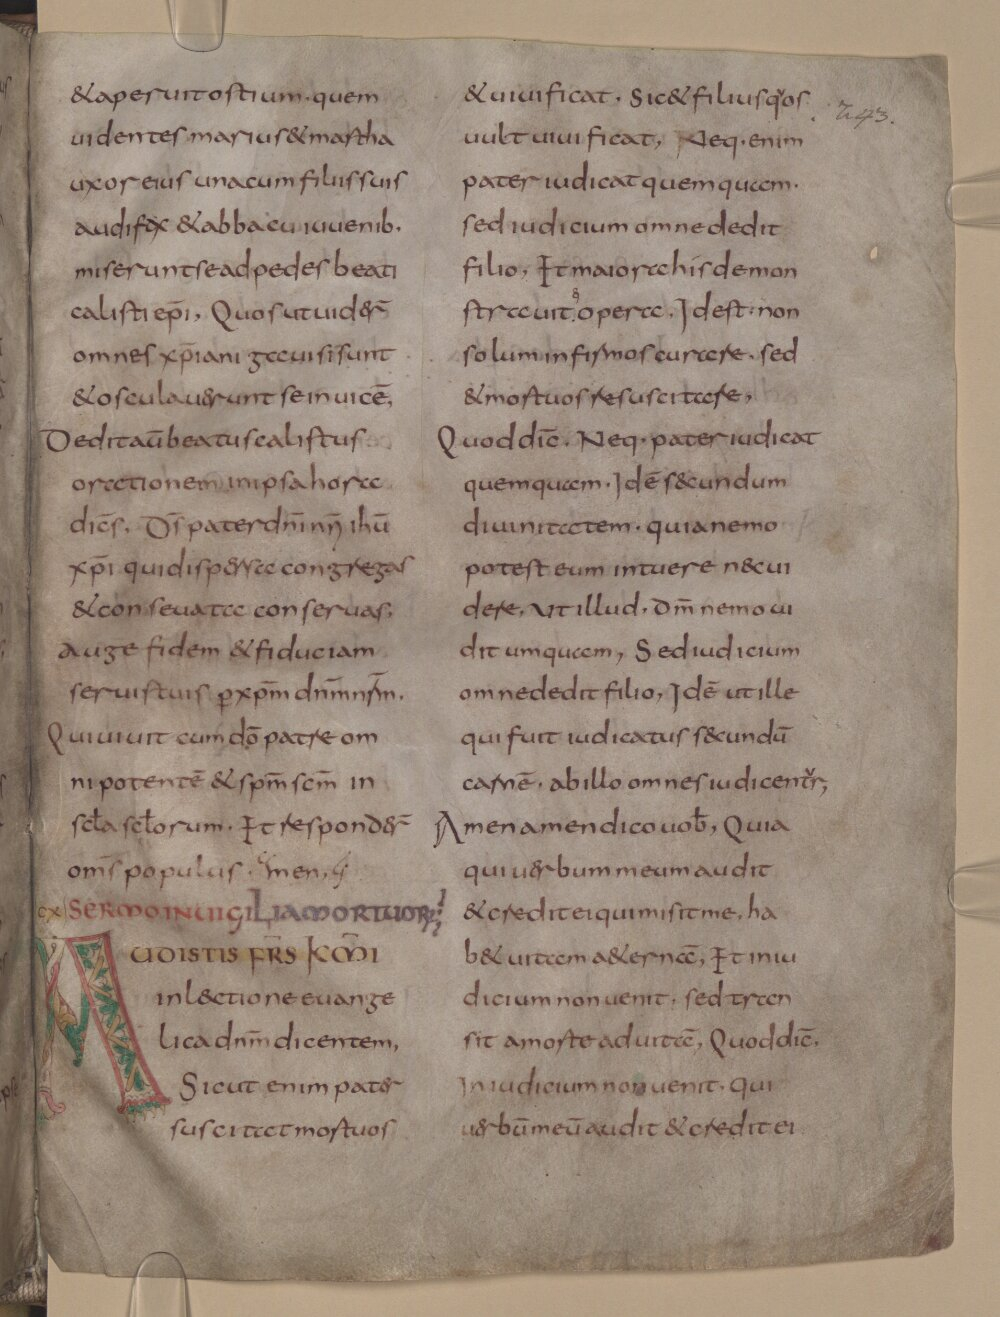 243.
& aperuit ostium. quem
uidentes marius & martha
uxor eius una cum filiis suis
audifax & abbacu iuuenib.
miserunt se ad pedes beati
calisti ep̄i, Quos ut uider̄
omnes xp̄iani gauisi sunt
& osculauerunt se inuicē,
Dedit aū beatus calistus
orationem in ipsa hora
dicēs, Ds̄ pater dn̄i nr̄i ihū
xp̄i qui dispersa congregas
& conseuata conseruas,
Auge fidem & fiduciam
seruis tuis p̱ xp̄m dn̄m nr̄m.
Qui uiuit cum dō patre om
nipotentē & sp̄m sc̄m in
scła scłorum. Et responder̄
om̄s populus. Amen,
xx SERMO IN UIGILIA MORTUOR,
AUDISTIS FR̄S KM̄I
in l&ctione euange
lica dn̄m dicentem,
Sicut enim pater
suscitat mortuos
& uiuificat. Sic & filius qͦs
uult uiuificat, Neq. enim
pater iudicat quemquam.
sed iudicium omne dedit
filio, Et maiora his demon
strauit & opera. Idest. non
solum infirmos curare. sed
& mortuos resuscitare,
Quod dic̄. Neq. pater iudicat
quemquam. Idē s&cundum
diuinitatem. quia nemo
potest eum intuere n&cui
dere, ut illud. Dm̄ nemo ui
dit umquam, Sed iudicium
omne dedit filio, Idē ut ille
qui fuit iudicatus s&cundū
carnē. ab illo omnes iudicent͛,
Amen amen dico uob̄, Quia
qui uerbum meum audit
& credit ei qui misit me, ha
b& uitam a&ernā, Et in iu
dicium non uenit. sed tran
sit a morte ad uitā, Quod dic̄.
In iudicium non uenit. qui
uerbū meū audit & credit ei